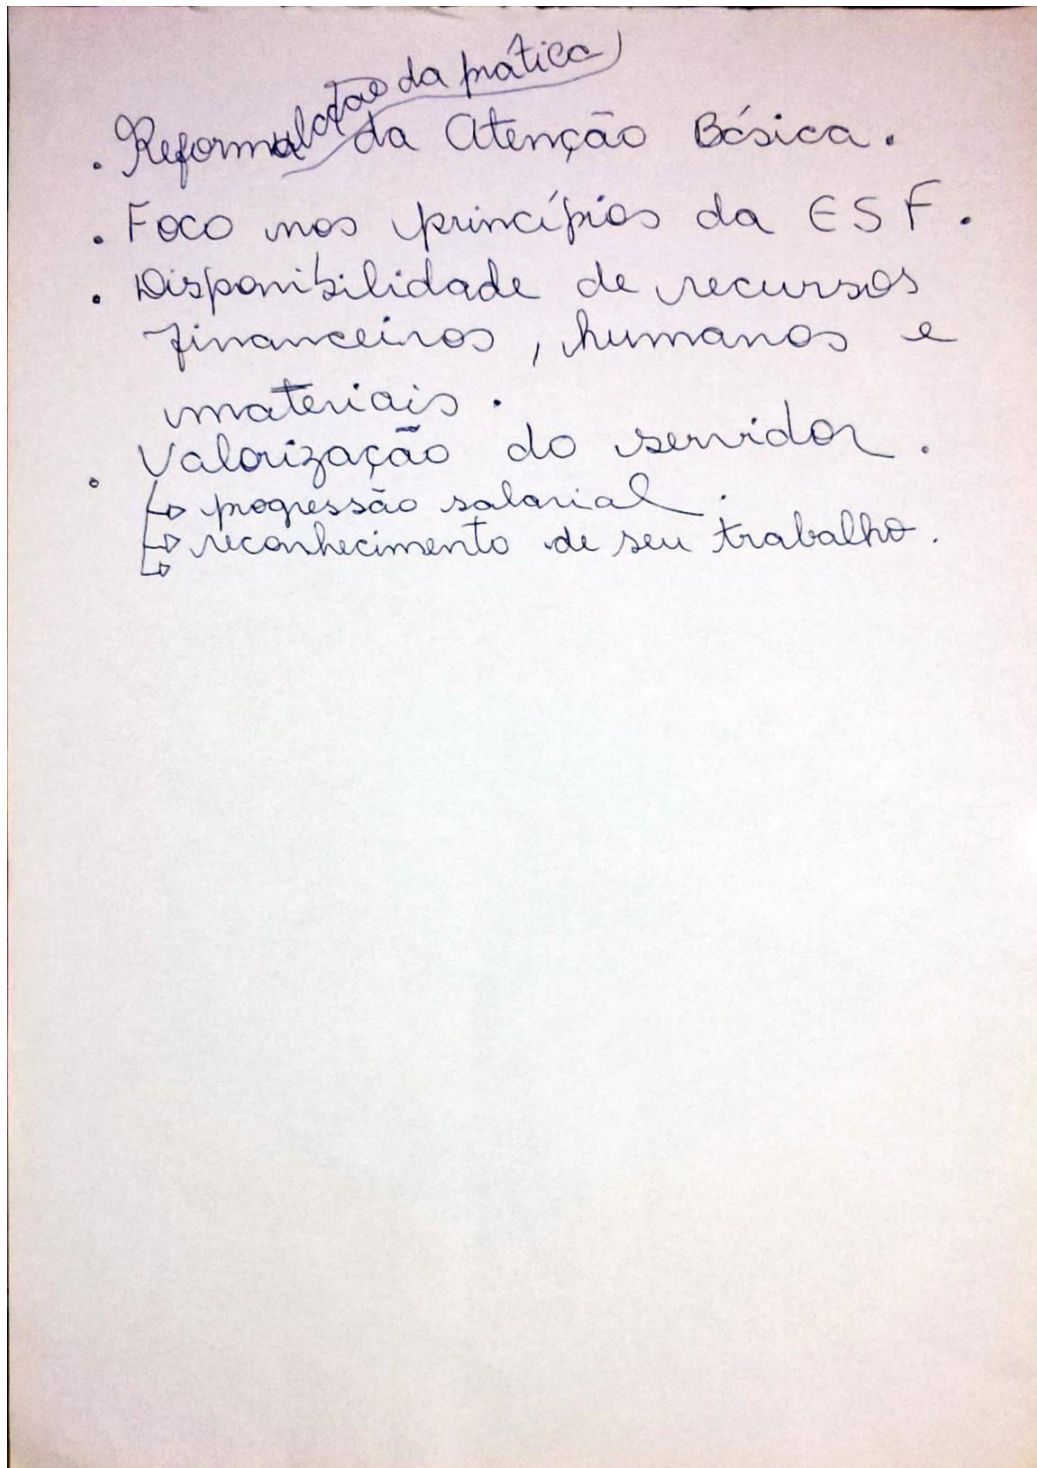 . Reformulação da prática da Atenção Básica.
. Foco nos princípios da ESF.
. Disponibilidade de recursos
financeiros, humanos e
materiais.
. Valorização do servidor.
↳ progressão salarial.
↳ reconhecimento de seu trabalho.
↳